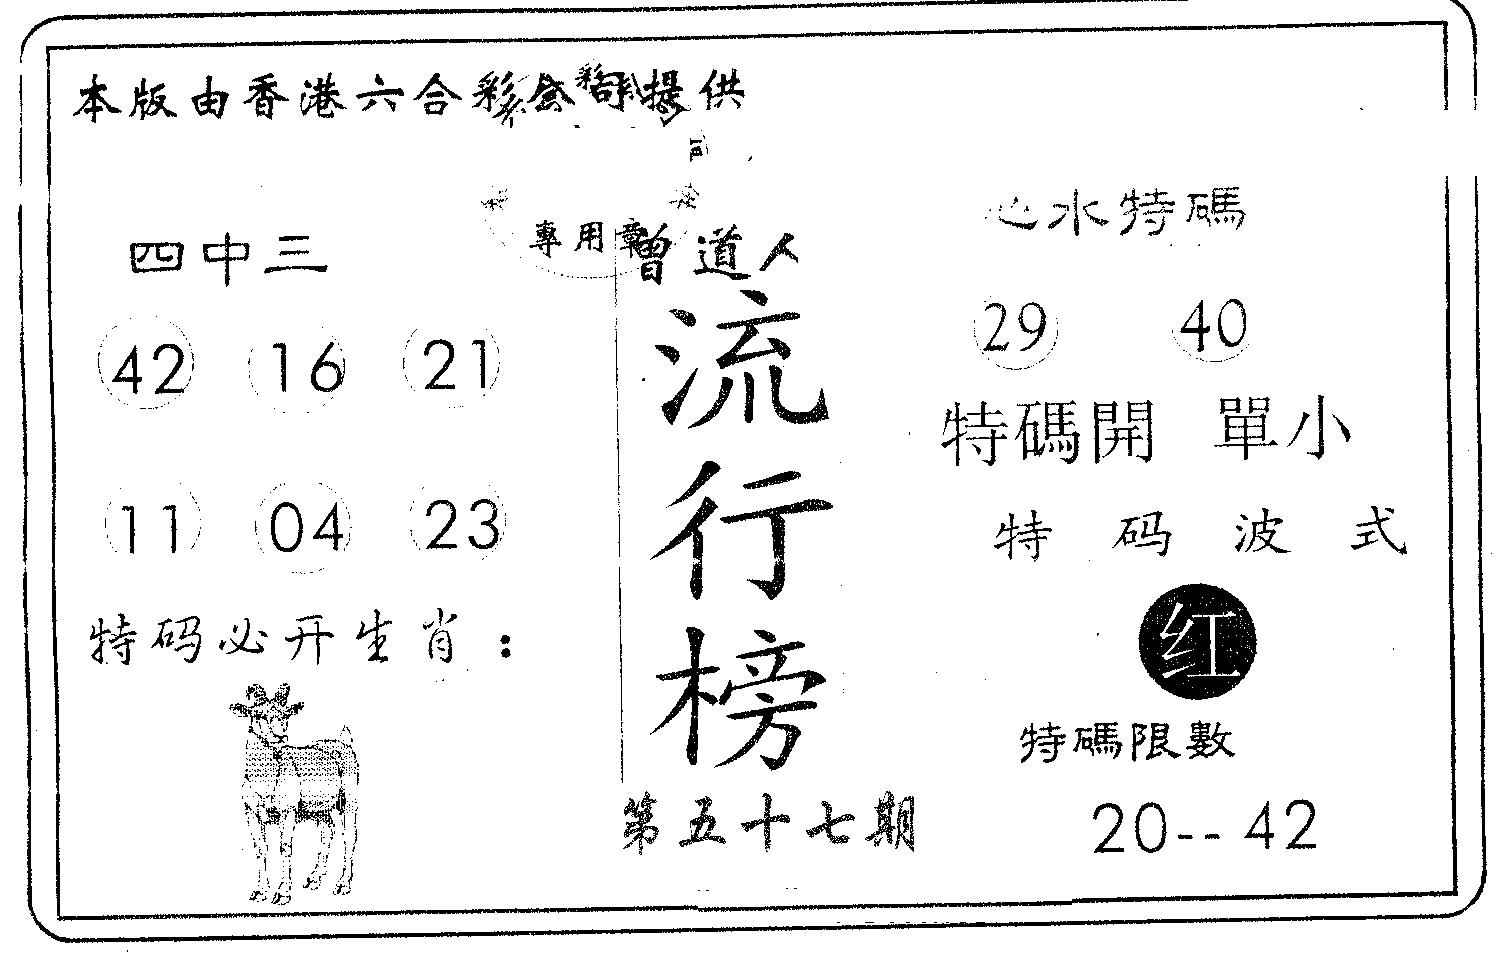 本版由香港六合彩公司提供
專用章
四中三
42 16 21
11 04 23
特码必开生肖：
曾道人
流行榜
第五十七期
心水特碼
29 40
特碼開 單小
特码波式
红
特碼限數
20--42